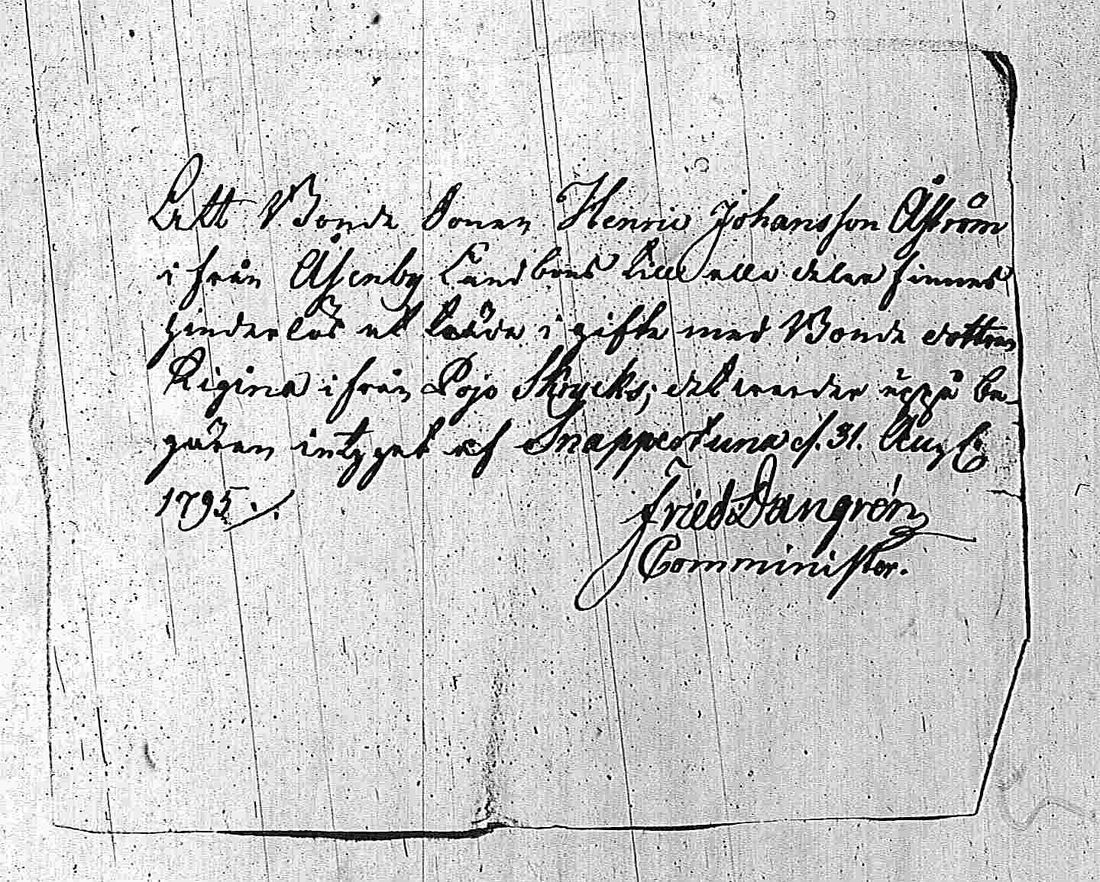 Att Bonde Sonen Henric Johansson Åström
ifrån Åsenby Landbons till alla delar finnes
hinderlös at träda i gifte med Bonde dottren
Regina ifrån Pojo Skrycks; det warder uppå be-
gäran intygat af Snappertuna d. 31. Aug
1795.
Fried Dangrén
Comminister.